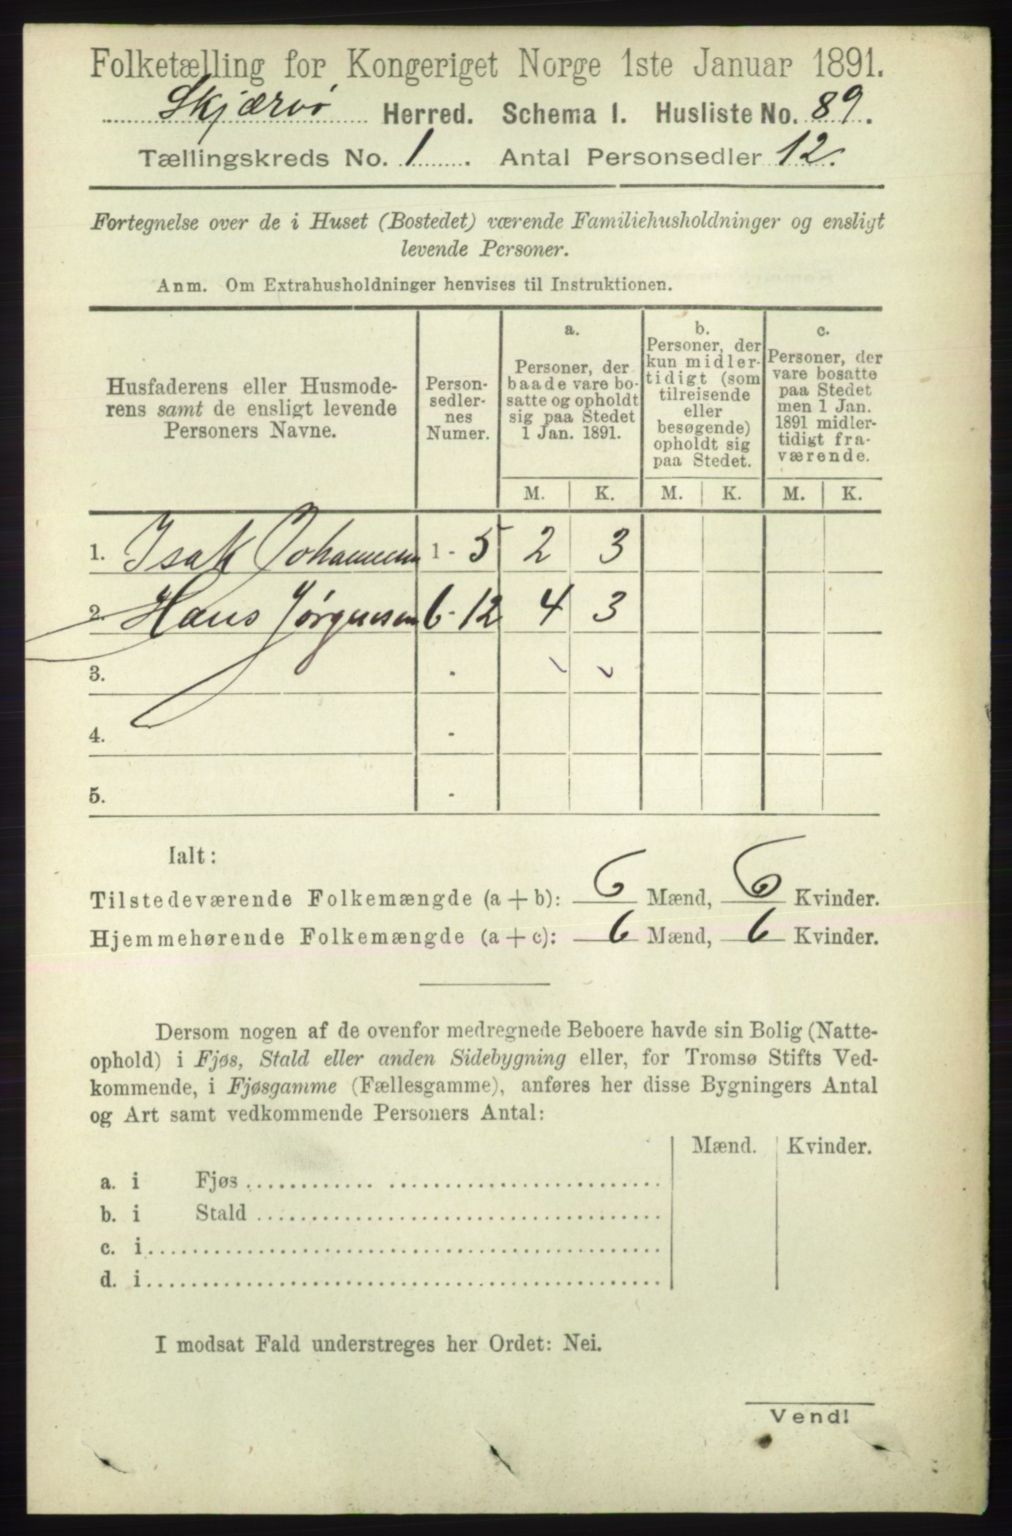 Folketælling for Kongeriget Norge 1ste Januar 1891.
Skjærvø Herred. Schema I. Husliste No. 89.
Tællingskreds No. 1. Antal Personsedler 12.
Fortegnelse over de i Huset (Bostedet) værende Familiehusholdninger og ensligt
levende Personer.
Anm. Om Extrahusholdninger henvises til Instruktionen.
Husfaderens eller Husmode-
rens samt de ensligt levende
Personers Navne.
Person-
sedler-
nes
Numer.
a.
Personer, der
baade vare bo-
satte og opholdt
sig paa Stedet
1 Jan. 1891.
b.
Personer, der
kun midler-
tidigt (som
tilreisende
eller
besøgende)
opholdt sig
paa Stedet.
c.
Personer, der
vare bosatte
paa Stedet
men 1 Jan.
1891 midler-
tidigt fra-
værende.
M. K. M. K. M. K.
1. Isak Johannesen 1 - 5 2 3
2. Hans Jørgensen 6 - 12 4 3
3. -
4. -
5. -
Ialt:
Tilstedeværende Folkemængde (a + b): 6 Mænd, 6 Kvinder.
Hjemmehørende Folkemængde (a + c): 6 Mænd, 6 Kvinder.
Dersom nogen af de ovenfor medregnede Beboere havde sin Bolig (Natte-
ophold) i Fjøs, Stald eller anden Sidebygning eller, for Tromsø Stifts Ved-
kommende, i Fjøsgamme (Fællesgamme), anføres her disse Bygningers Antal
og Art samt vedkommende Personers Antal:
Mænd. Kvinder.
a. i Fjøs
b. i Stald
c. i
d. i
I modsat Fald understreges her Ordet: Nei.
Vend!